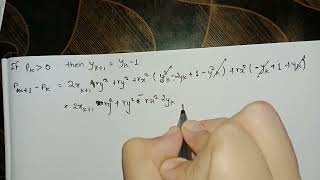 If Pk > 0 then yk+1 = yk - 1
Pk+1 - Pk = 2xk+1 ry² + ry² + rx² (yk² - 2yk + 1 - yk²) + rx² (-yk + 1 + yk)
= 2xk+1 ry² + ry² - rx² 2yk